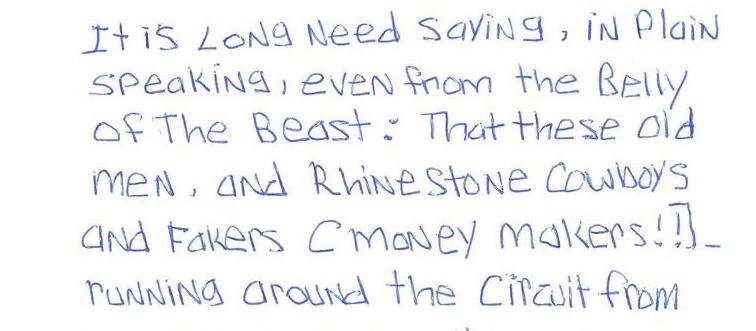 It is Long Need Saying, in Plain
Speaking, even from the Belly
of The Beast: That these old
men, and Rhinestone Cowboys
and Fakers (money makers!!)-
running around the Circuit from